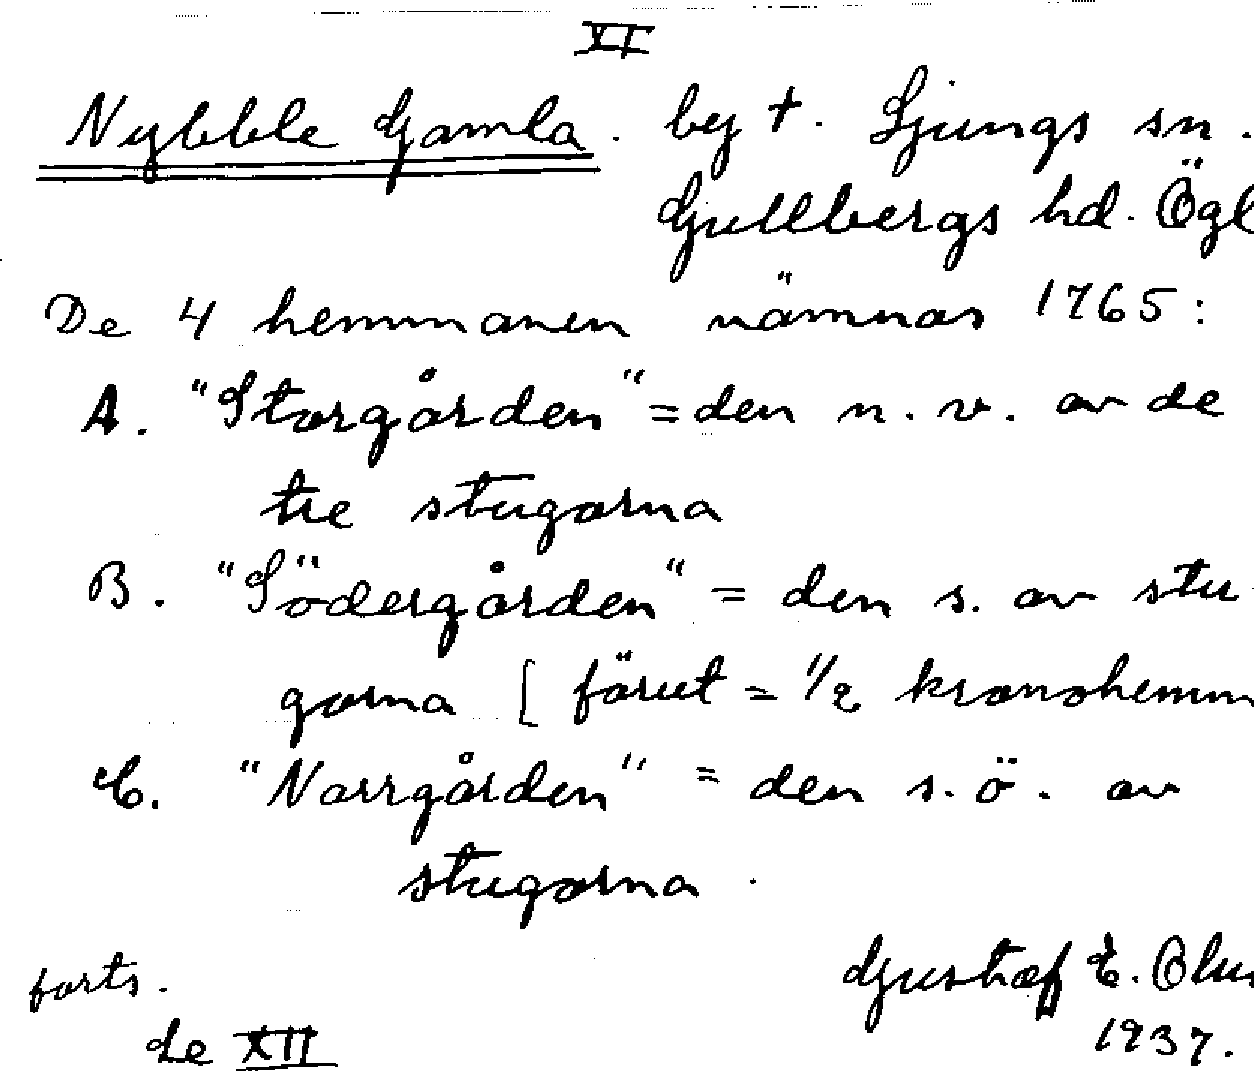 XI
Nybble Gamla. by †. Ljungs sn.
Gullbergs hd. Ögl
De 4 hemmanen nämnas 1765:
A. "Storgården" = den n. v. av de
tre stugorna
B. "Södergården" = den s. av stu-
gorna [förut = 1/2 kronohemm
C. "Norrgården" = den s. ö. av
stugorna.
forts.
Gustaf E. Olus
se XII
1937.